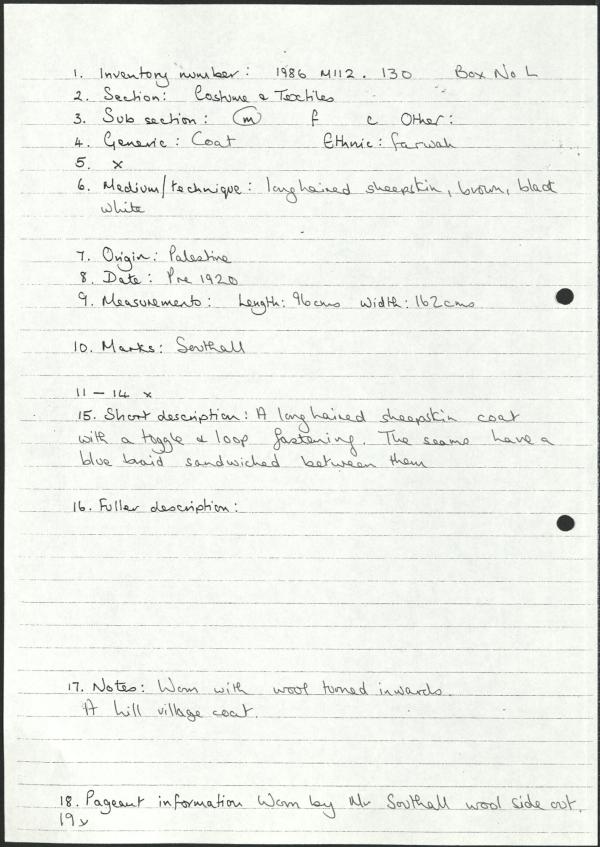 1. Inventory number: 1986 M112. 130 Box No L
2. Section: Costume & Textiles
3. Sub section: m f c Other:
4. Generic: Coat Ethnic: farwah
5. x
6. Medium/technique: longhaired sheepskin, brown, black
white
7. Origin: Palestine
8. Date: Pre 1920
9. Measurements: Length: 96cms Width: 162cms
10. Marks: Southall
11 – 14 x
15. Short description: A longhaired sheepskin coat
with a toggle & loop fastening. The seams have a
blue braid sandwiched between them
16. Fuller description:
17. Notes: Worn with wool turned inwards.
A hill village coat.
18. Pageant information Worn by Mr Southall wool side out.
19 x